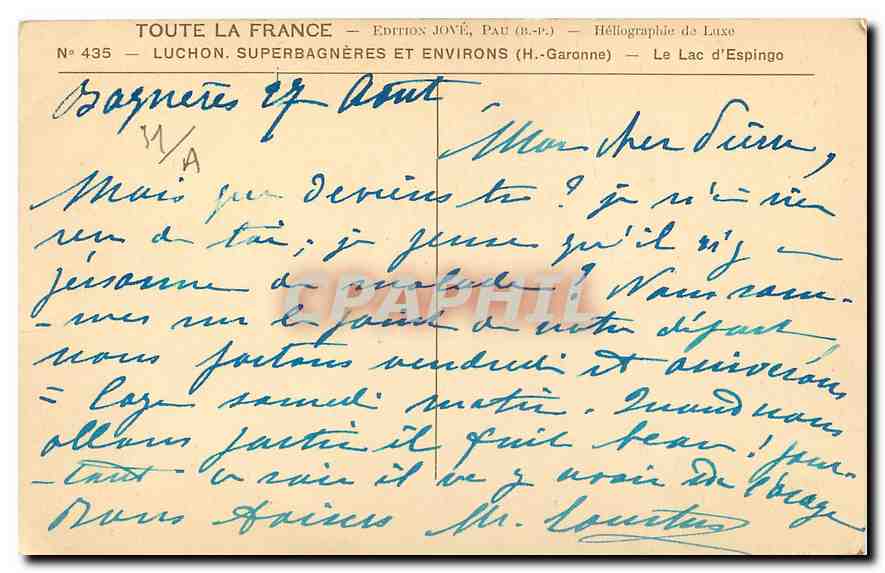 TOUTE LA FRANCE — EDITION JOVÉ, PAU (B.-P.) — Héliographie de Luxe
N° 435 — LUCHON. SUPERBAGNÈRES ET ENVIRONS (H.-Garonne) — Le Lac d'Espingo
Bagnères 27 Aout
31/A
Mon cher Pierre,
Mais que deviens tu ? je n'ai rien
recu de toi ; je pense qu'il n'y a
personne de malade ? Nous som-
-mes sur le point de notre départ
nous partons vendredi et arriverons
samedi matin. Quand nous
allons partir il fait beau ! pour-
-tant ce soir il va y avoir de l'orage
Bons baisers M.
CPAPHIL